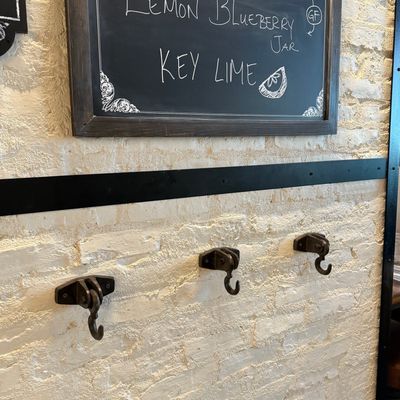 Lemon Blueberry GF
Jar
Key Lime